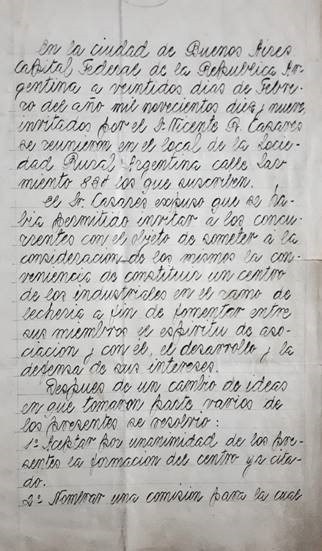 En la ciudad de Buenos Aires
Capital Federal de la Republica Ar-
gentina a veintidos dias de Febre-
ro del año mil novecientos diez y nueve
invitados por el Sr. Vicente R. Casares
se reunieron en el local de la Socie-
dad Rural Argentina calle Sar-
miento 834 los que suscriben.
El Sr. Casares expuso que se ha-
bia permitido invitar a los concu-
rrentes con el objeto de someter a la
consideracion de los mismos la con-
veniencia de constituir un centro
de los industriales en el ramo de
lecheria a fin de fomentar entre
sus miembros el espiritu de aso-
ciacion y con el, el desarrollo y la
defensa de sus intereses.
Despues de un cambio de ideas
en que tomaron parte varios de
los presentes se resolvio:
1º Aceptar por unanimidad de los pre-
sentes la formacion del centro ya cita-
do.
2º Nombrar una comision para la cual